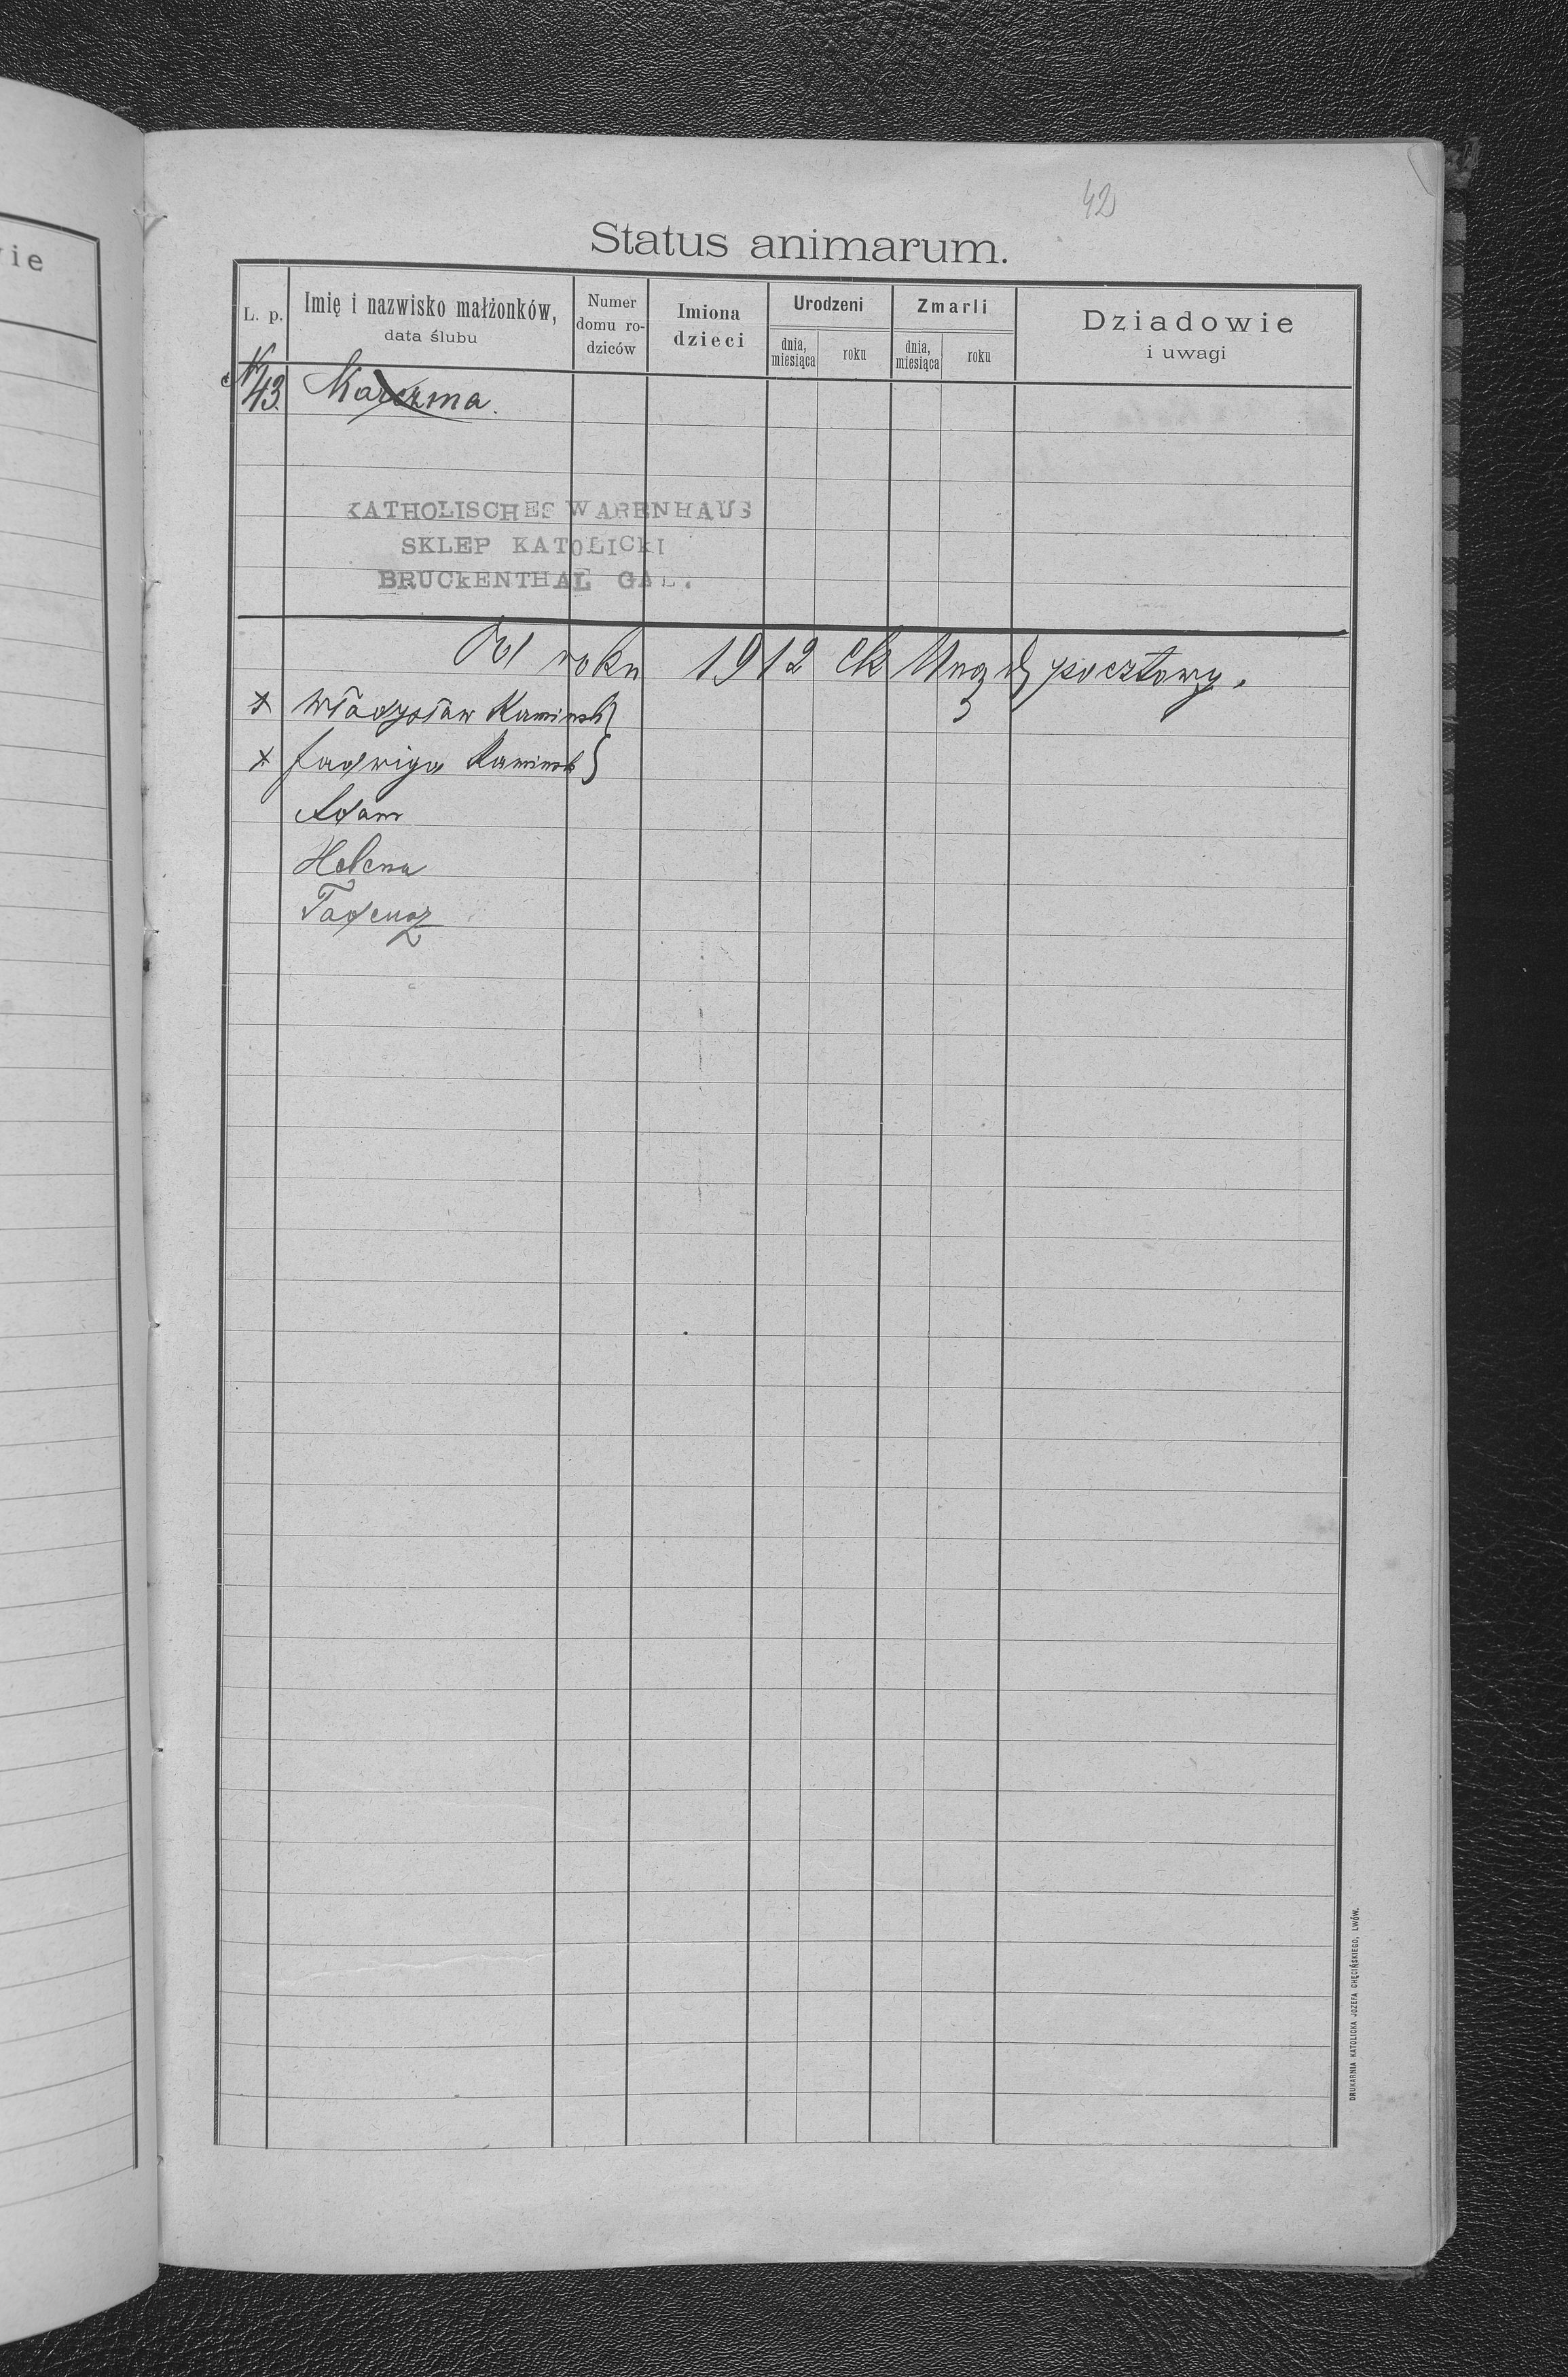 ie
42
Status animarum.
L. p.
Imię i nazwisko małżonków,
data ślubu
Numer
domu ro-
dziców
Imiona
dzieci
Urodzeni
dnia,
miesiąca
roku
Zmarli
dnia,
miesiąca
roku
Dziadowie
i uwagi
N 43. Karczma.
KATHOLISCHES WARENHAUS
SKLEP KATOLICKI
BRUCKENTHAL GAL.
Od roku 1912 ck Urząd pocztowy.
x Władysław Kaminski }
x Jadwiga Kaminsk }
Adam
Helena
Tadeusz
DRUKARNIA KATOLICKA JÓZEFA CHĘCIŃSKIEGO, LWÓW.